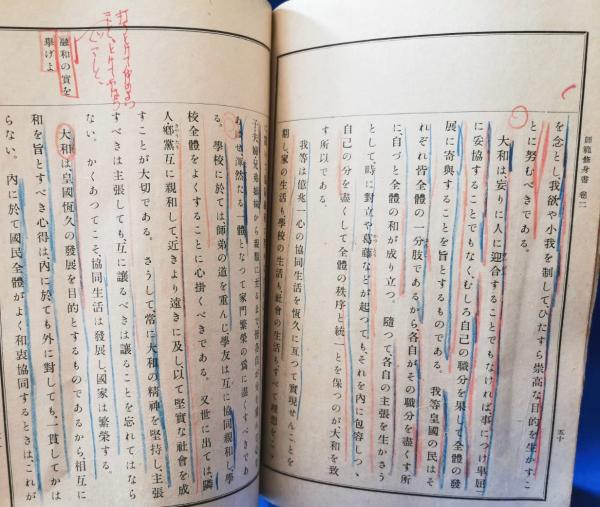 師範修身書 卷二
五十
を念とし、我欲や小我を制して、ひたすら崇高な目的を生かすこ
とに努むべきである。
大和は妄りに人に迎合することでもなければ事につけ卑屈
に妥協することでもなく、むしろ自己の職分を果して全體の發
展に寄與することを旨とするものである。我等皇國の民はそ
れぞれ皆全體の一分肢であるから、各自がその職分を盡くす所
に、自づと全體の和が成り立つ。隨つて、各自の主張を生かさう
として時に對立や葛藤などが起つても、それを內に包容しつゝ、
自己の分を盡くして全體の秩序と統一とを保つのが大和を致
す所以である。
我等は億兆一心の協同生活を恆久に亙つて實現せんことを
期し、家の生活も學校の生活も、社會の生活もすべて理想を
融和の實を
擧げよ
渾然たる一體となつて家門繁榮の爲に盡くすべきであ
る。學校に於ては、師弟の道を重んじ學友は互に協同親和し、學
校全體をよくすることに心掛くべきである。又世に出ては隣
人、鄕黨互に親和して、近きより遠きに及し以て堅實な社會を成
すことが大切である。さうして、常に大和の精神を堅持し、主張
すべきは主張しても互に讓るべきは讓ることを忘れてはなら
ない。かくあつてこそ、協同生活は發展し國家は繁榮する。
大和は皇國恆久の發展を目的とするものであるから相互に
和を旨とすべき心得は內に於ても外に對しても、一貫してかは
らない。內に於て國民全體がよく和衷協同するときは、これが